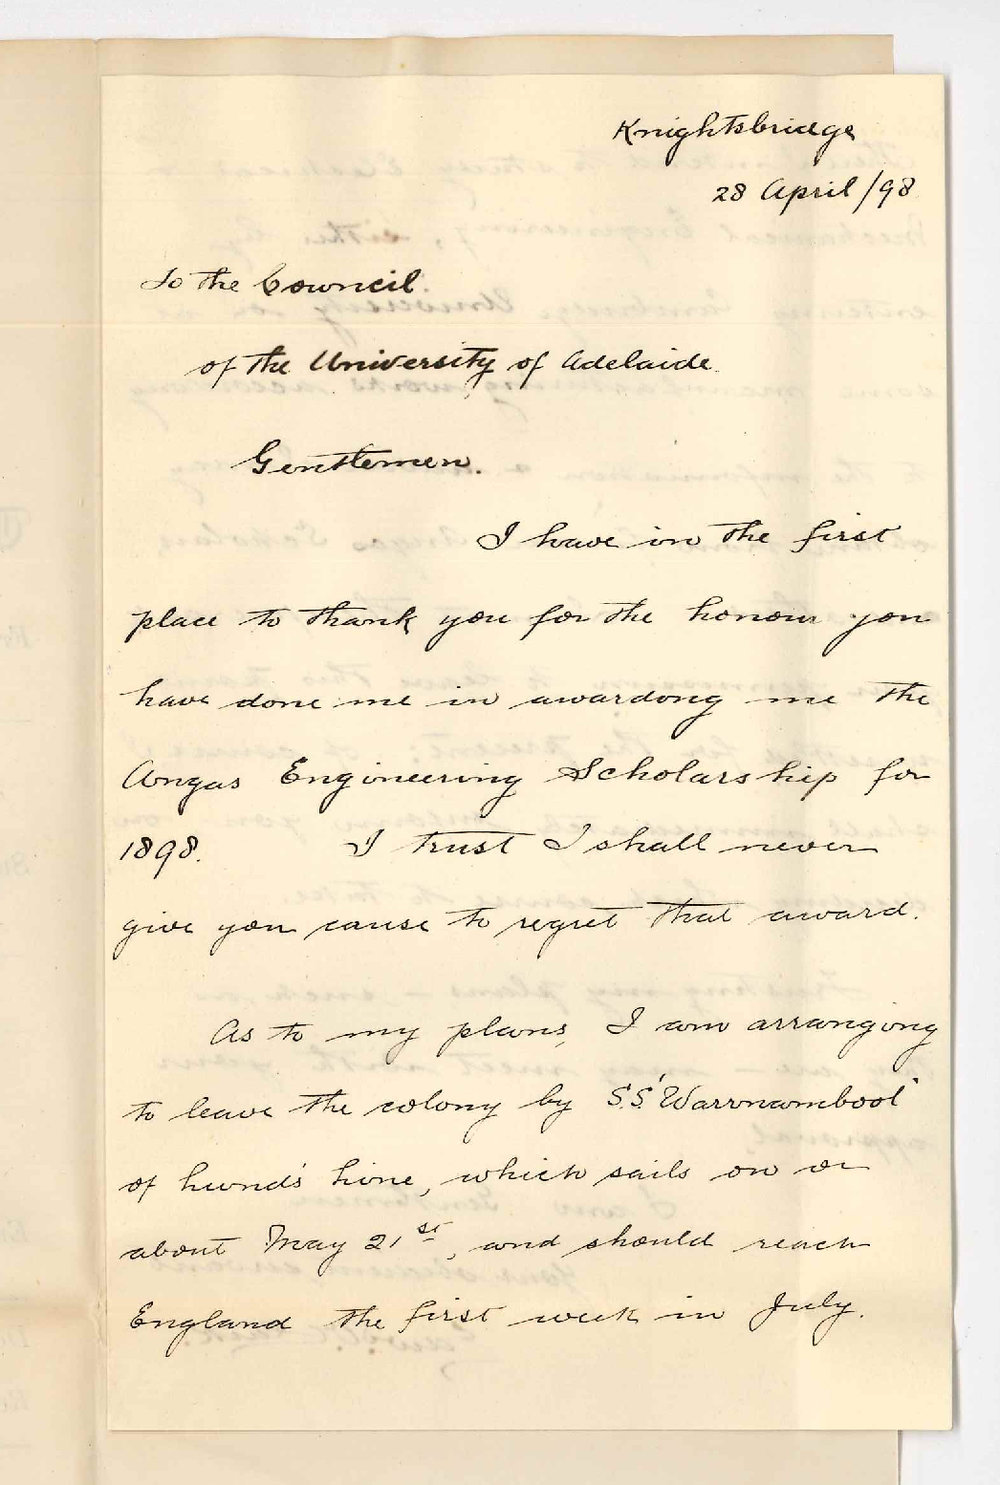 Knightsbridge
28 April /98
To the Council
of the University of Adelaide
Gentlemen.
I have in the first
place to thank you for the honour you
have done me in awarding me the
Angas Engineering Scholarship for
1898. I trust I shall never
give you cause to regret that award.
As to my plans, I am arranging
to leave the colony by S.S. 'Warrnambool'
of Lund's line, which sails on or
about May 21st, and should reach
England the first week in July.